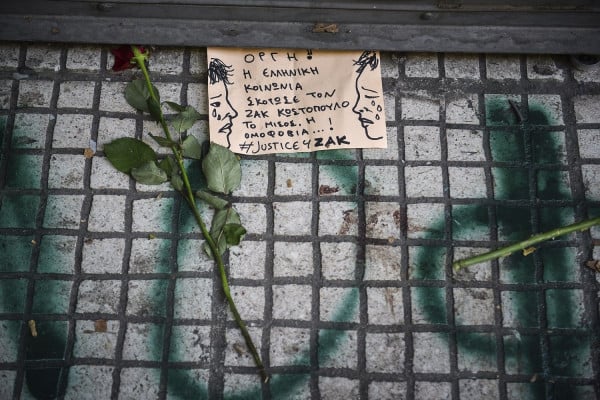 ΟΡΓΗ!
Η ΕΛΛΗΝΙΚΗ
ΚΟΙΝΩΝΙΑ
ΣΚΟΤΩΣΕ ΤΟΝ
ΖΑΚ ΚΩΣΤΟΠΟΥΛΟ
ΤΟ ΜΙΣΟΣ, Η
ΟΜΟΦΟΒΙΑ...!
#JUSTICE4ZAK